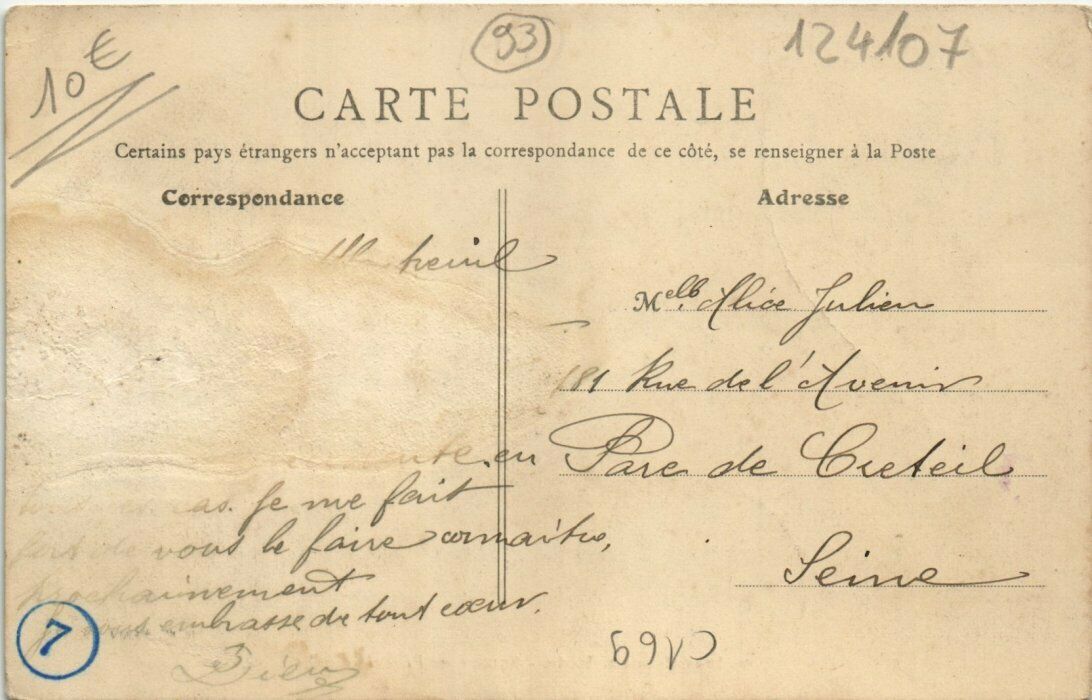 10€
93
124/07
CARTE POSTALE
Certains pays étrangers n'acceptant pas la correspondance de ce côté, se renseigner à la Poste
Correspondance
Adresse
treuil
en
tous en cas. je me fait
fort de vous le faire connaître,
prochainement
Je vous embrasse de tout cœur.
Melle Alice Julien
181 Rue de l'Avenir
Parc de Creteil
Seine
7
C169